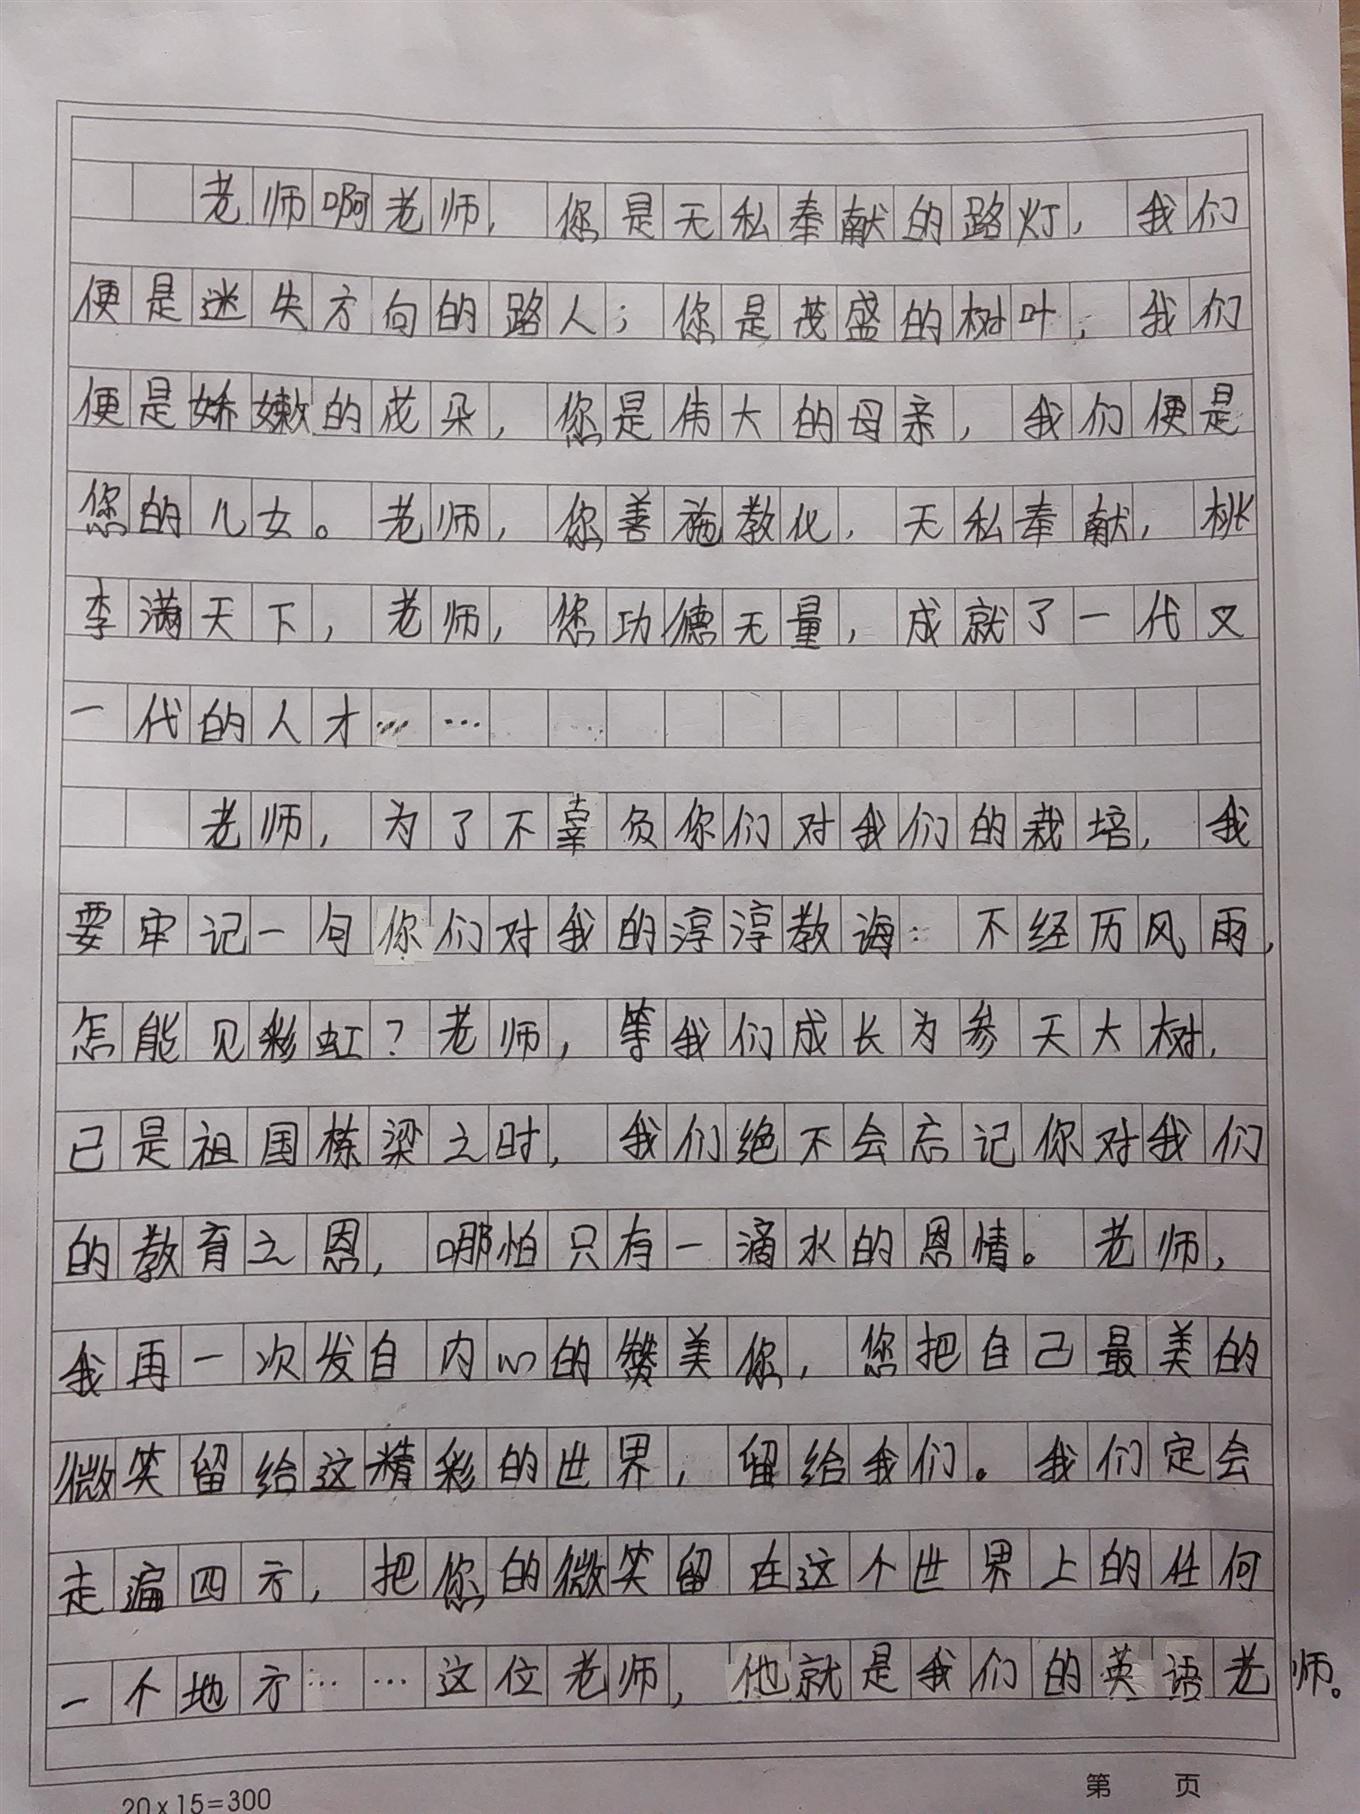 老师啊老师，您是无私奉献的路灯，我们
便是迷失方向的路人；您是茂盛的树叶，我们
便是娇嫩的花朵，您是伟大的母亲，我们便是
您的儿女。老师，您善施教化，无私奉献，桃
李满天下，老师，您功德无量，成就了一代又
一代的人才……
老师，为了不辜负你们对我们的栽培，我
要牢记一句你们对我的淳淳教诲：不经历风雨，
怎能见彩虹？老师，等我们成长为参天大树，
已是祖国栋梁之时，我们绝不会忘记你对我们
的教育之恩，哪怕只有一滴水的恩情。老师，
我再一次发自内心的赞美您，您把自己最美的
微笑留给这精彩的世界，留给我们。我们定会
走遍四方，把您的微笑留在这个世界上的任何
一个地方……这位老师，他就是我们的英语老师。
20×15=300
第 页